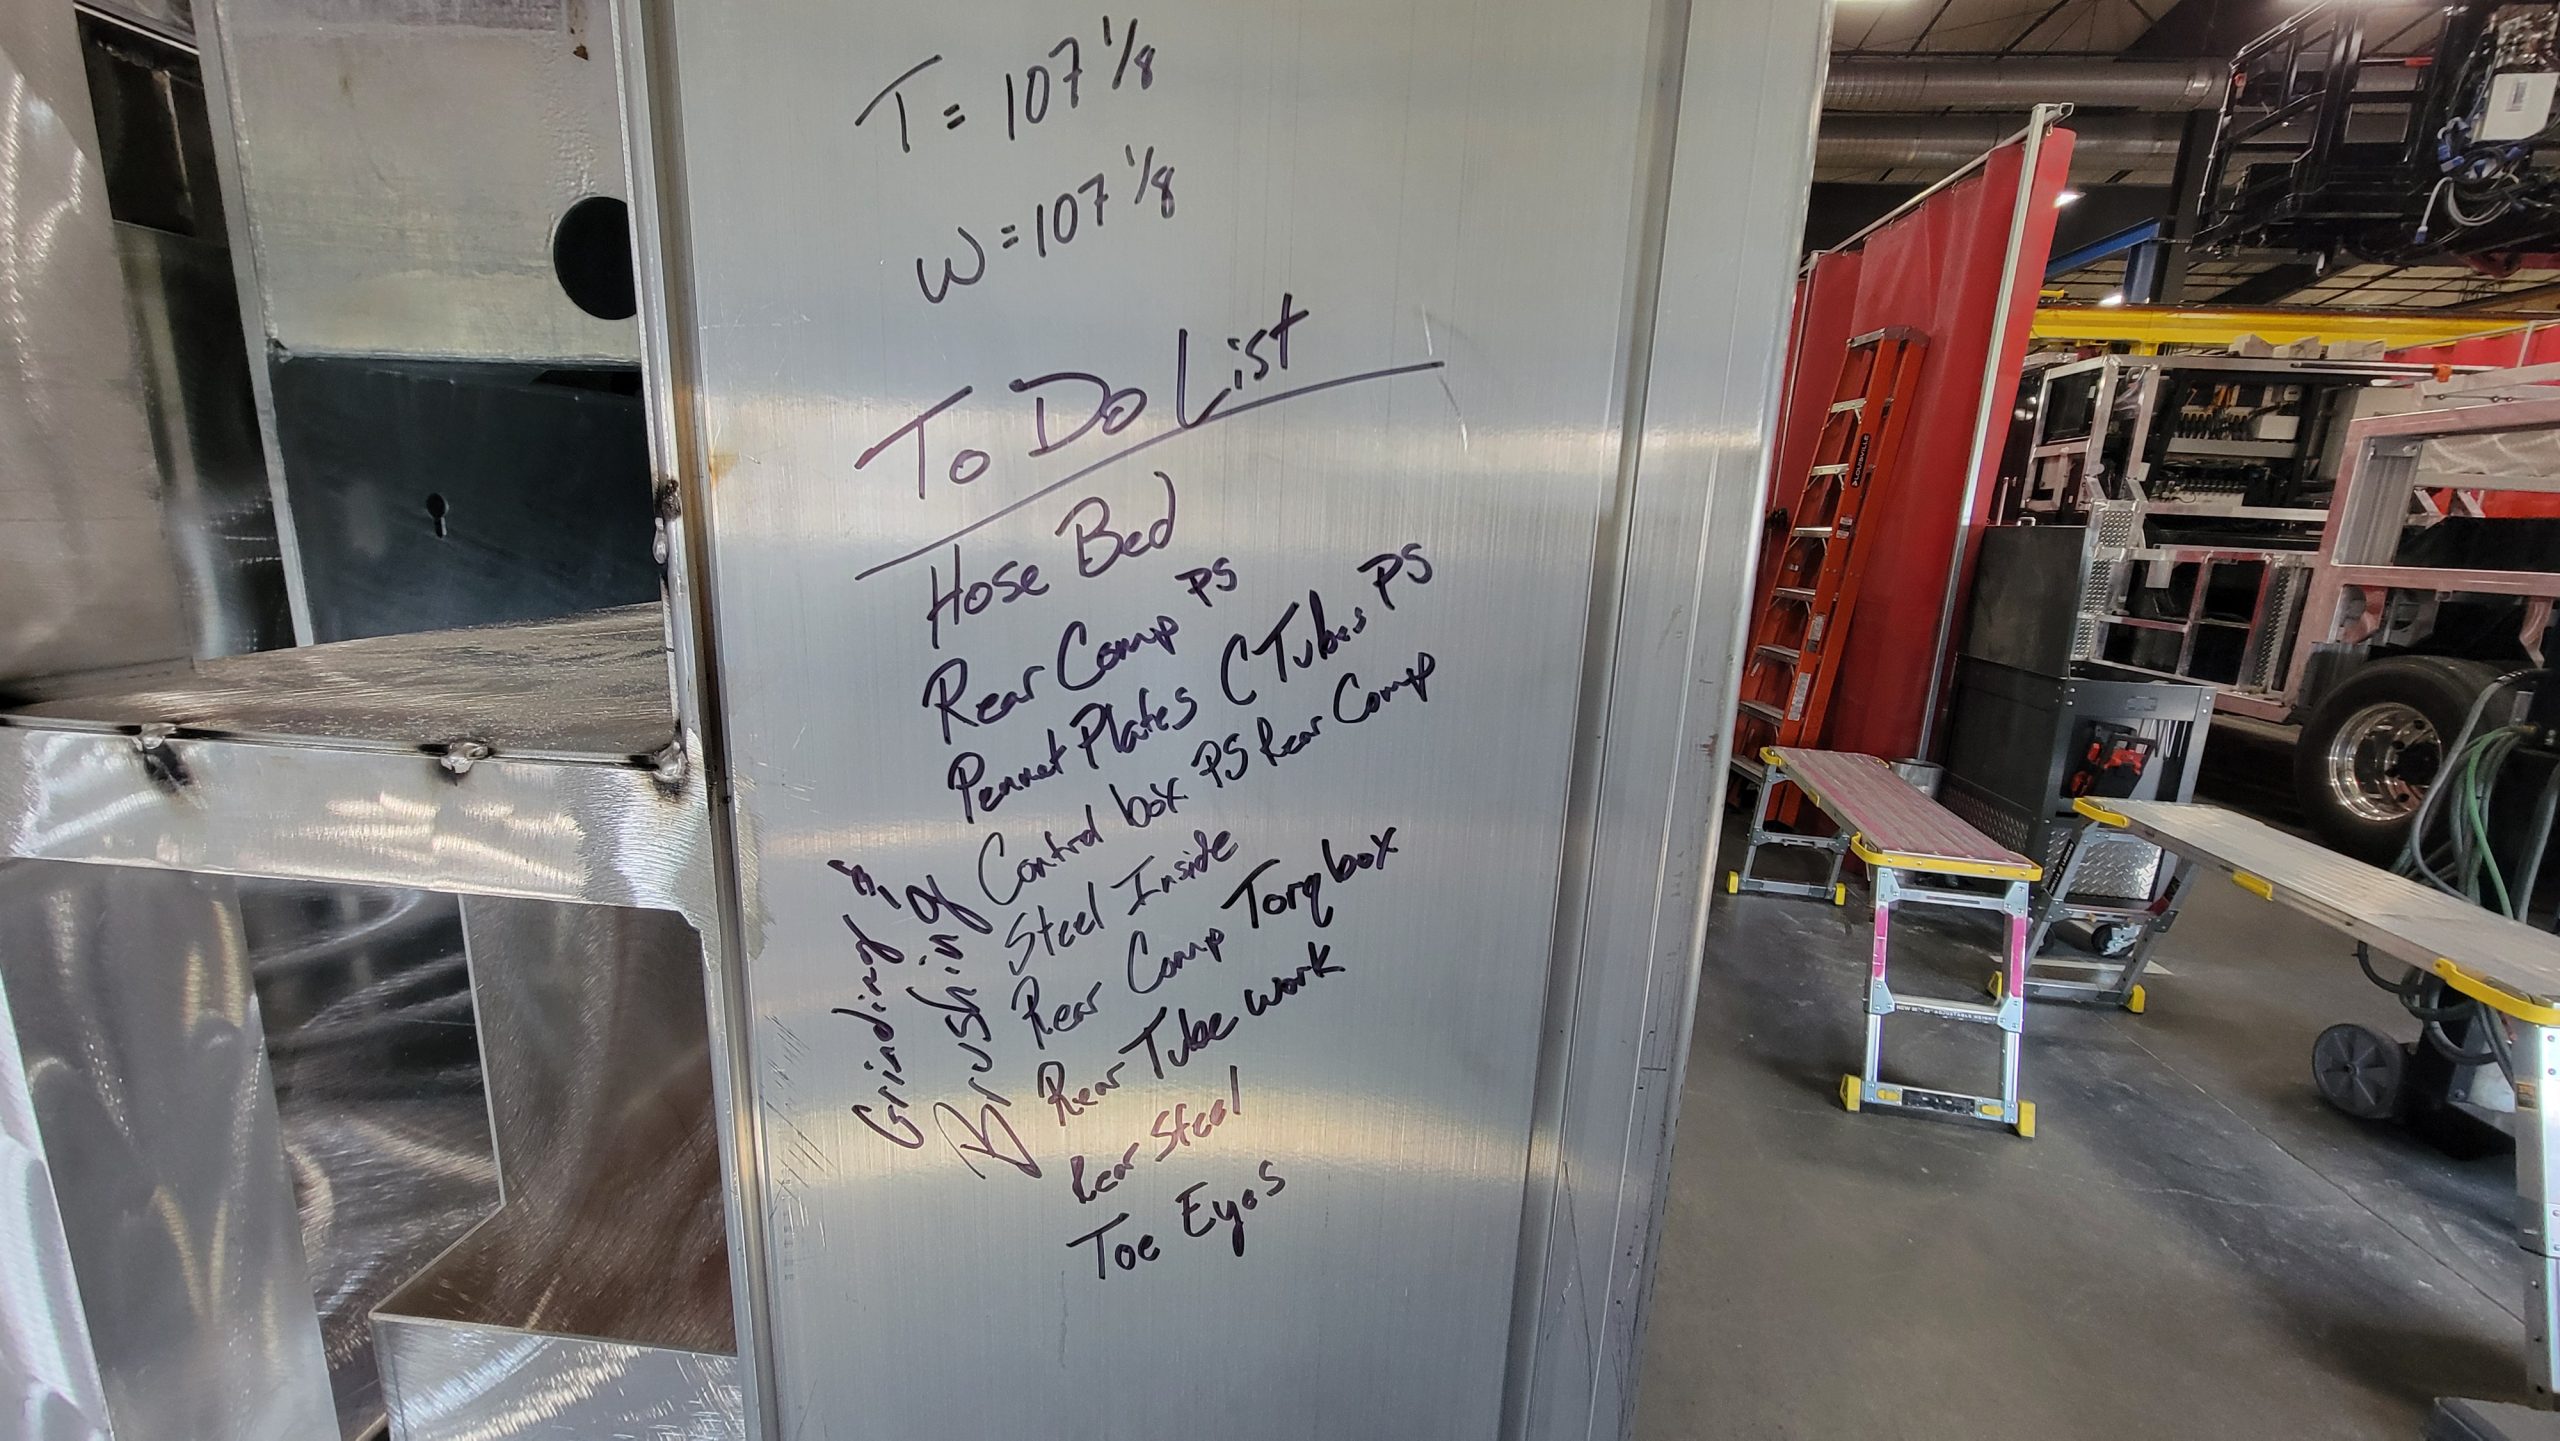 T = 107 1/8
W = 107 1/8
To Do List
Hose Bed
Rear Comp PS
Pennet Plates C Tubes PS
Control box PS Rear Comp
Steel Inside
Rear Comp Torqbox
Rear Tube work
Rear Steel
Toe Eyes
Grinding &
Brushing
LOUISVILLE